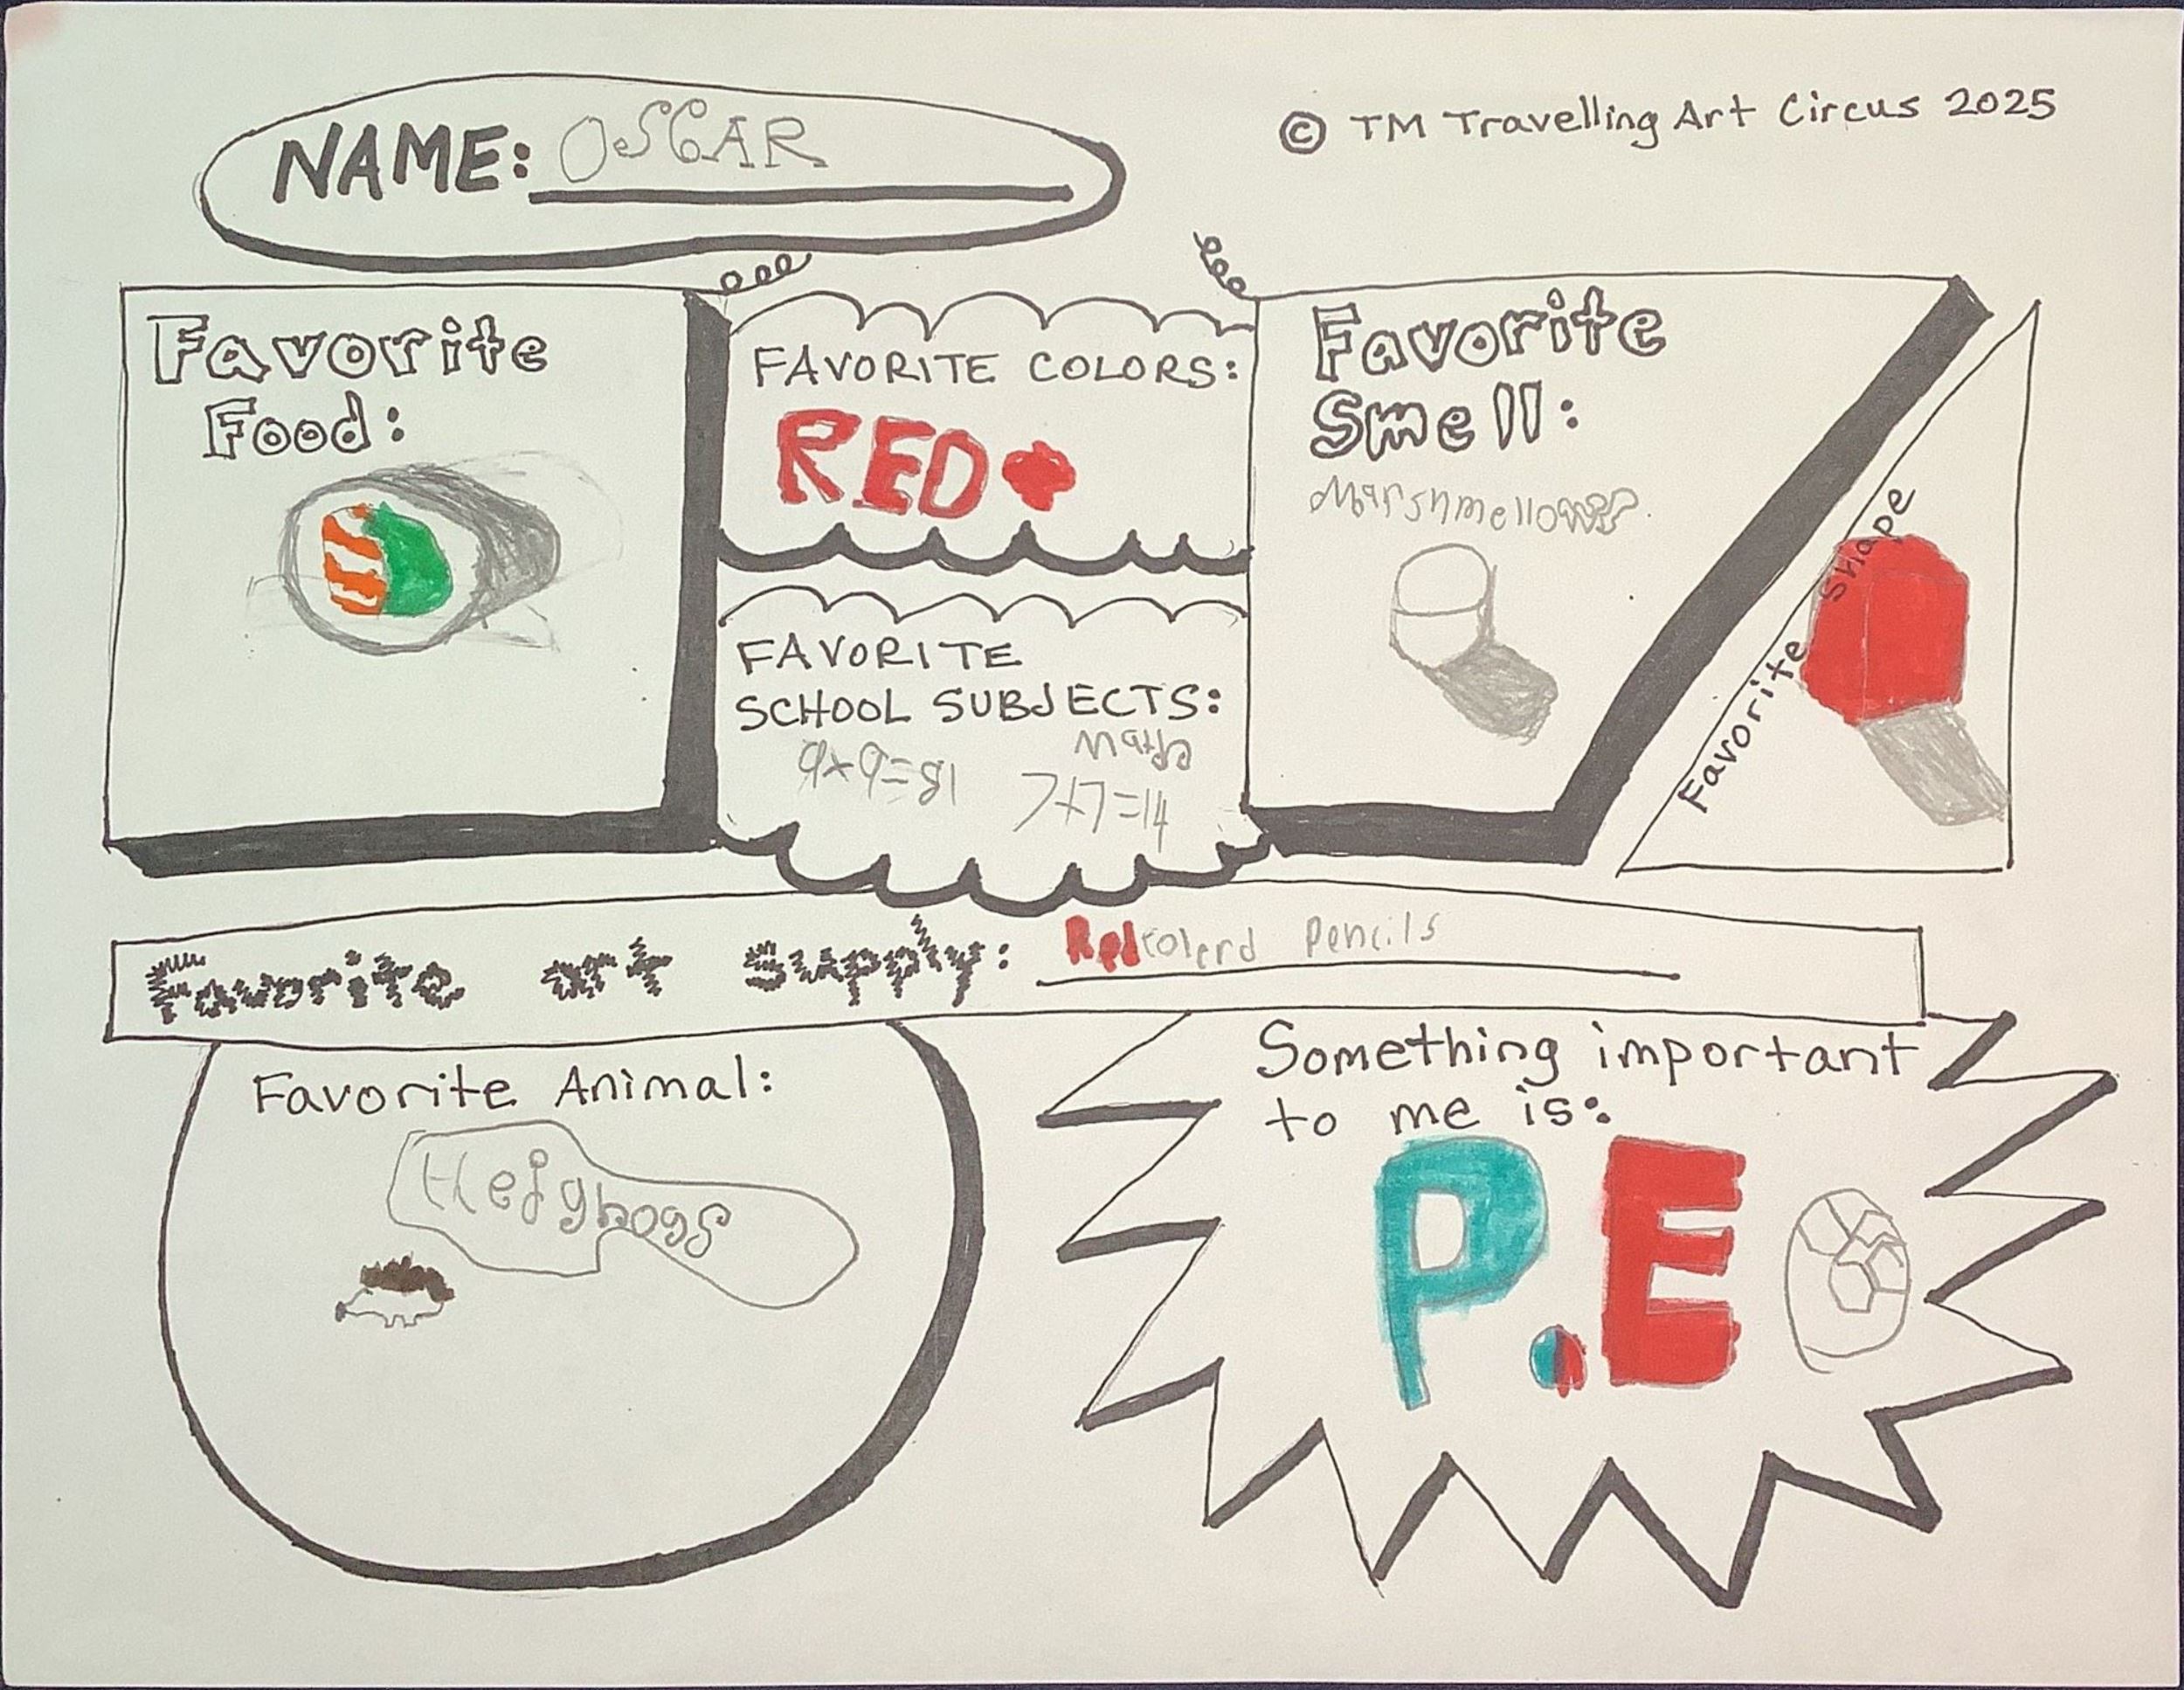 NAME: OSCAR
© TM Travelling Art Circus 2025
Favorite
Food:
FAVORITE COLORS:
RED
FAVORITE
SCHOOL SUBJECTS:
Math
9x9=81 7+7=14
Favorite
Smell:
Marshmellows
Favorite Shape
Favorite art Supply: Red colerd Pencils
Favorite Animal:
Hejghogs
Something important
to me is:
P.E